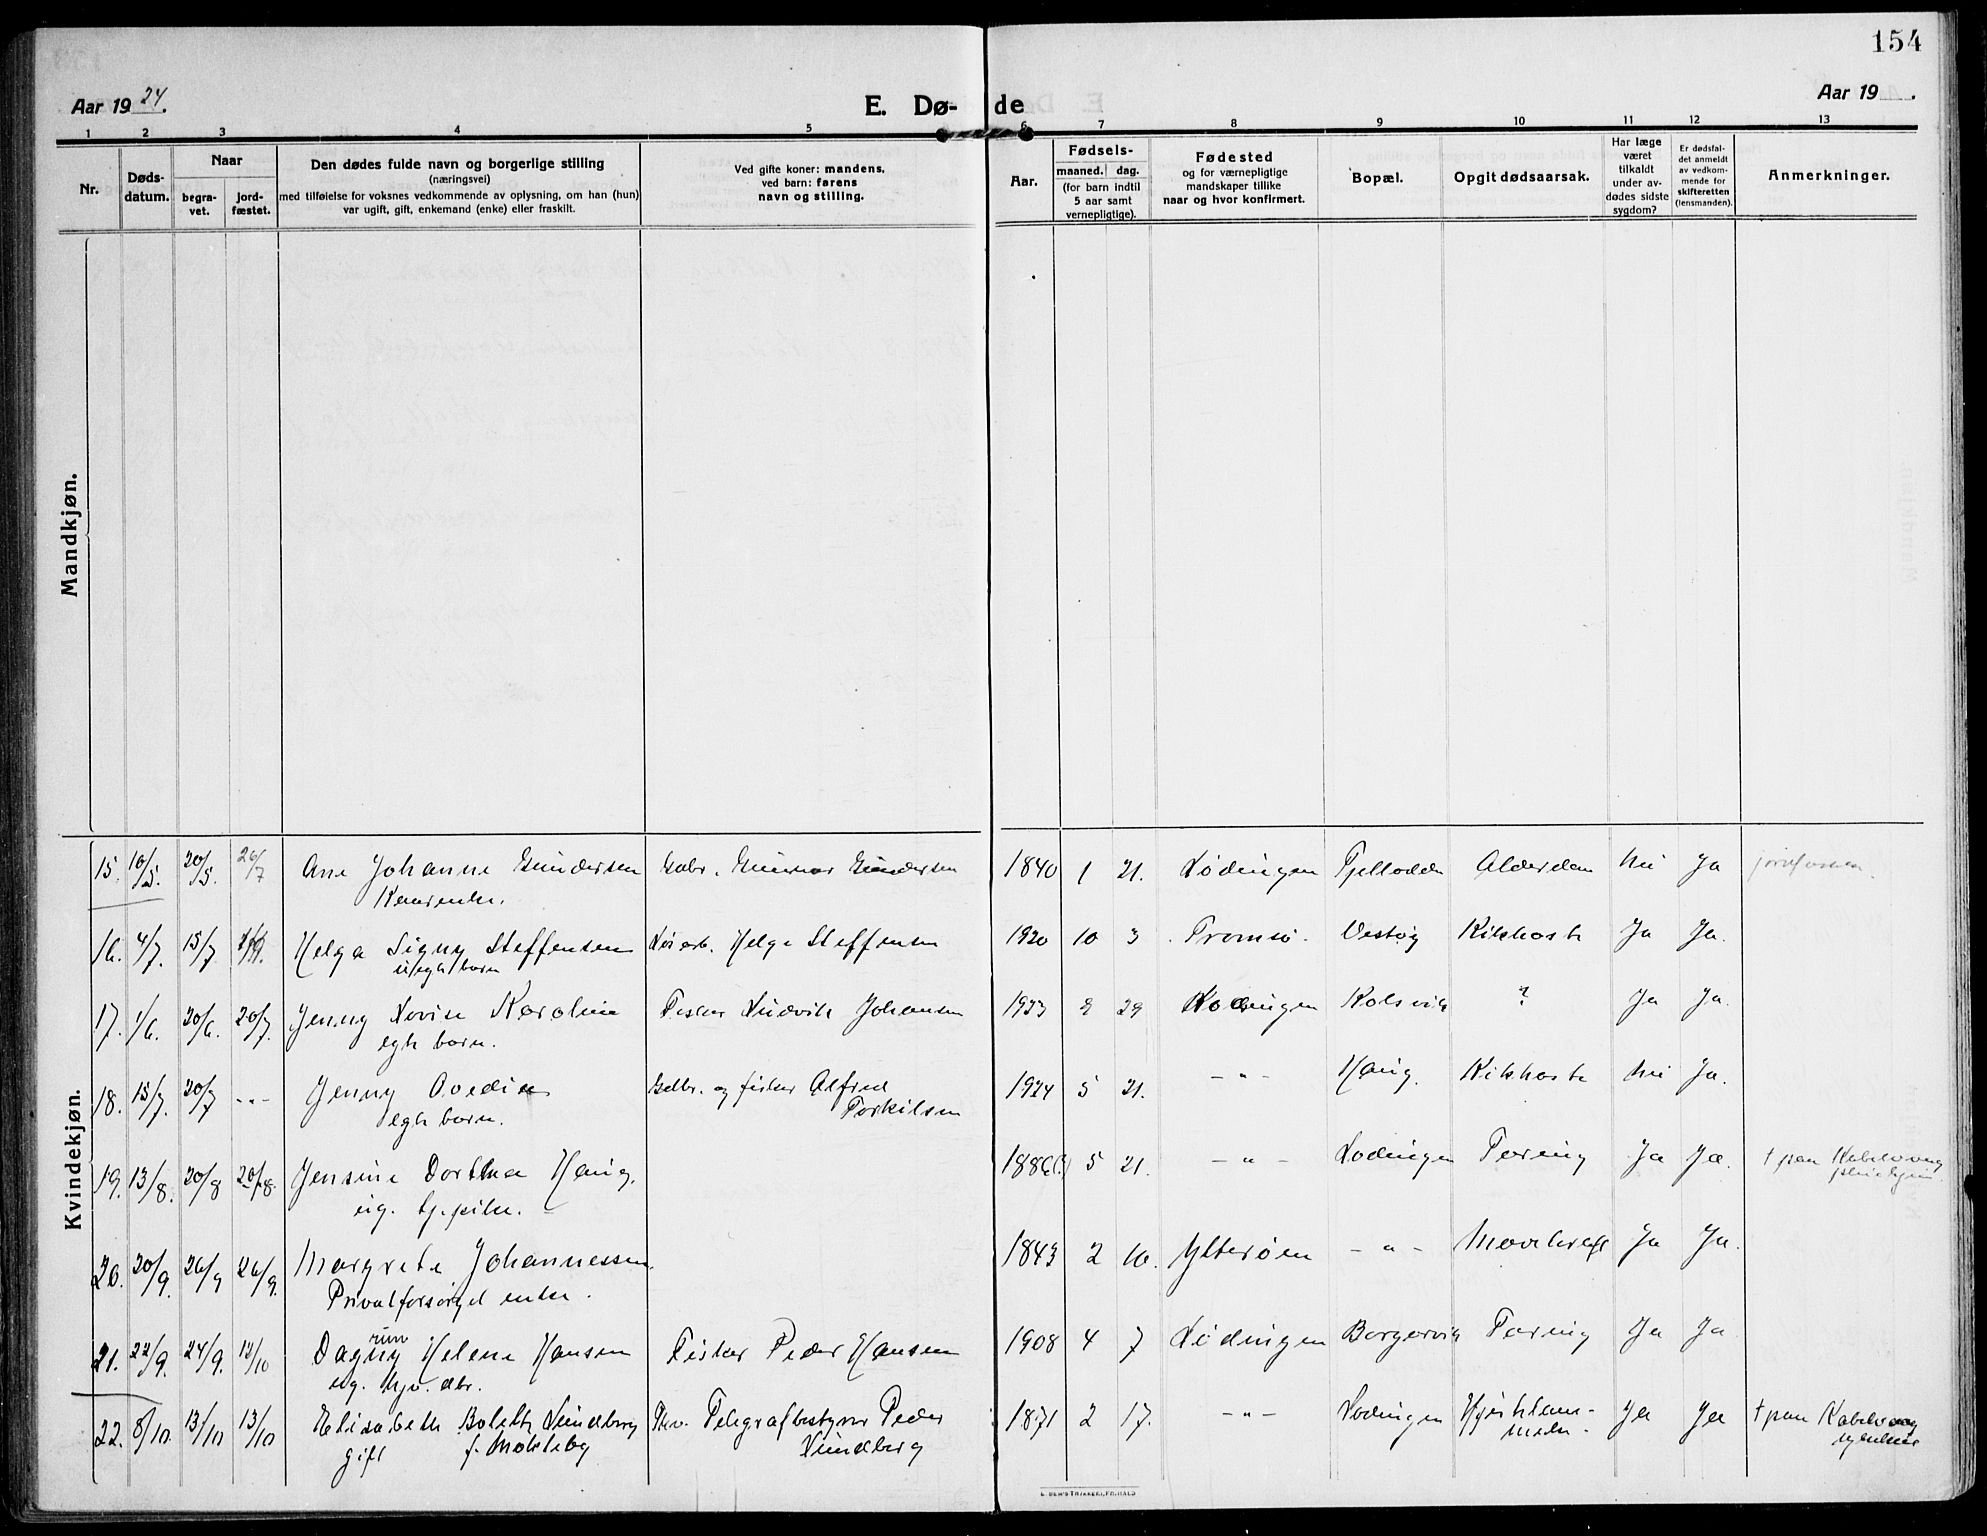 154
Aar 1924.
E. Dø-de
Aar 19 .
1 2 3 4 5 6 7 8 9 10 11 12 13
Nr.
Døds-
datum.
Naar
begra-
vet.
jord-
fæstet.
Den dødes fulde navn og borgerlige stilling
(næringsvei)
med tilføielse for voksnes vedkommende av oplysning, om han (hun)
var ugift, gift, enkemand (enke) eller fraskilt.
Ved gifte koner: mandens,
ved barn: farens
navn og stilling.
Aar.
Fødsels-
maaned. dag.
(for barn indtil
5 aar samt
vernepligtige).
Fødested
og for værnepligtige
mandskaper tillike
naar og hvor konfirmert.
Bopæl.
Opgit dødsaarsak.
Har læge
været
tilkaldt
under av-
dødes sidste
sygdom?
Er dødsfal-
det anmeldt
av vedkom-
mende for
skifteretten
(lensmanden).
Anmerkninger.
Mandkjøn.
Kvindekjøn.
15. 10/5. 20/5. 26/7 Ane Johanne Gundersen Gabr. Gunnar Gundersen 1840 1 21. Lødingen Fjellodden Alderdom Nei Ja
16. 4/7. 15/7 Helga Signy Steffensen Helge Steffensen 1920 10 3. Tromsø. Vestøy Kikhoste Ja Ja.
17. 1/6. 20/6. 20/7. Jenny Lovise Karoline Fisker Ludvik Johansen 1923 2 29 Lødingen Kolsvik ? Ja Ja.
egte barn.
18. 15/7. 20/7 -"- Jenny Ovedie Gdbr. og fisker Alfred 1924 5 21. -"- Haug. Kikhoste Nei Ja.
egte barn. Torkilsen
19. 13/8. 20/8 20/8. Jensine Dorthea Haug, 1886(?) 5 21. -"- Lødingen Tæring Ja Ja. † paa Kabelvaag
ug. tj.pike.
20. 20/9. 26/9 26/9. Margrete Johannessen. 1843 2 10. Ytterøen -"- Mavekræft Ja Ja.
Privatforsørget enke.
run
21. 22/9. 24/9. 12/10 Dagny Helene Hansen Fisker Peder Hansen 1908 4 7 Lødingen Borgervik Tæring Ja Ja
ug. hjv. dtr.
22. 8/10. 13/10 13/10 Elisabeth Bolette Lundberg Telegrafbestyrer Peder 1871 2 17. -"- Lødingen Hjerteklam- Ja Ja † paa Kabelvaag
gift f. Moksleby Lundberg sykehus